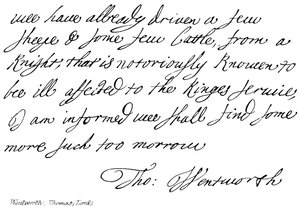 wee have allready driven a few
sheepe & some few Cattle, from a
Knight, that is notoriously knowen to
bee ill affected to the Kinges service,
I am informed wee shall find some
more such too morrow
Tho: Wentworth
Wentworth, Thomas, Lord.